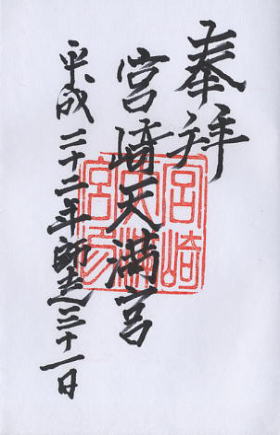 奉拝
宮崎天満宮
平成二十二年師走三十一日
宮崎
天満
宮印